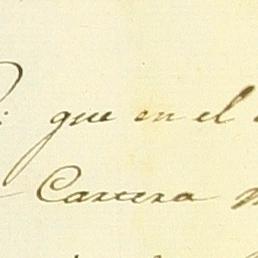 que en el
Carrera